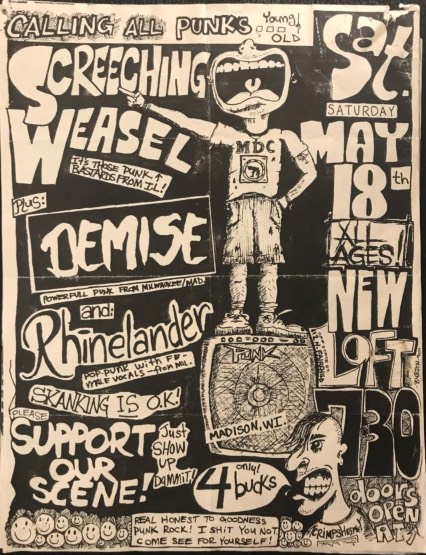 CALLING ALL PUNKS Young! OLD
SCREECHING
WEASEL
IT'S THOSE PUNK ↑
BASTARDS FROM IL!
Plus:
DEMISE
POWERFULL PUNK FROM MILWAUKEE/MAD.
and:
Rhinelander
POP-PUNK WITH FE-
MALE VOCALS - from MIL.
SKANKING IS O.K!
PLEASE
SUPPORT
OUR
SCENE!
Just
SHOW
UP
DAMMIT!
MDC
PUNK
MADISON, WI.
4 only!
bucks
REAL HONEST TO GOODNESS
PUNK ROCK! I SHIT YOU NOT
COME SEE FOR YOURSELF!
Sat.
SATURDAY
MAY
18th
All
AGES!
NEW
LOFT
730
doors
OPEN
AT